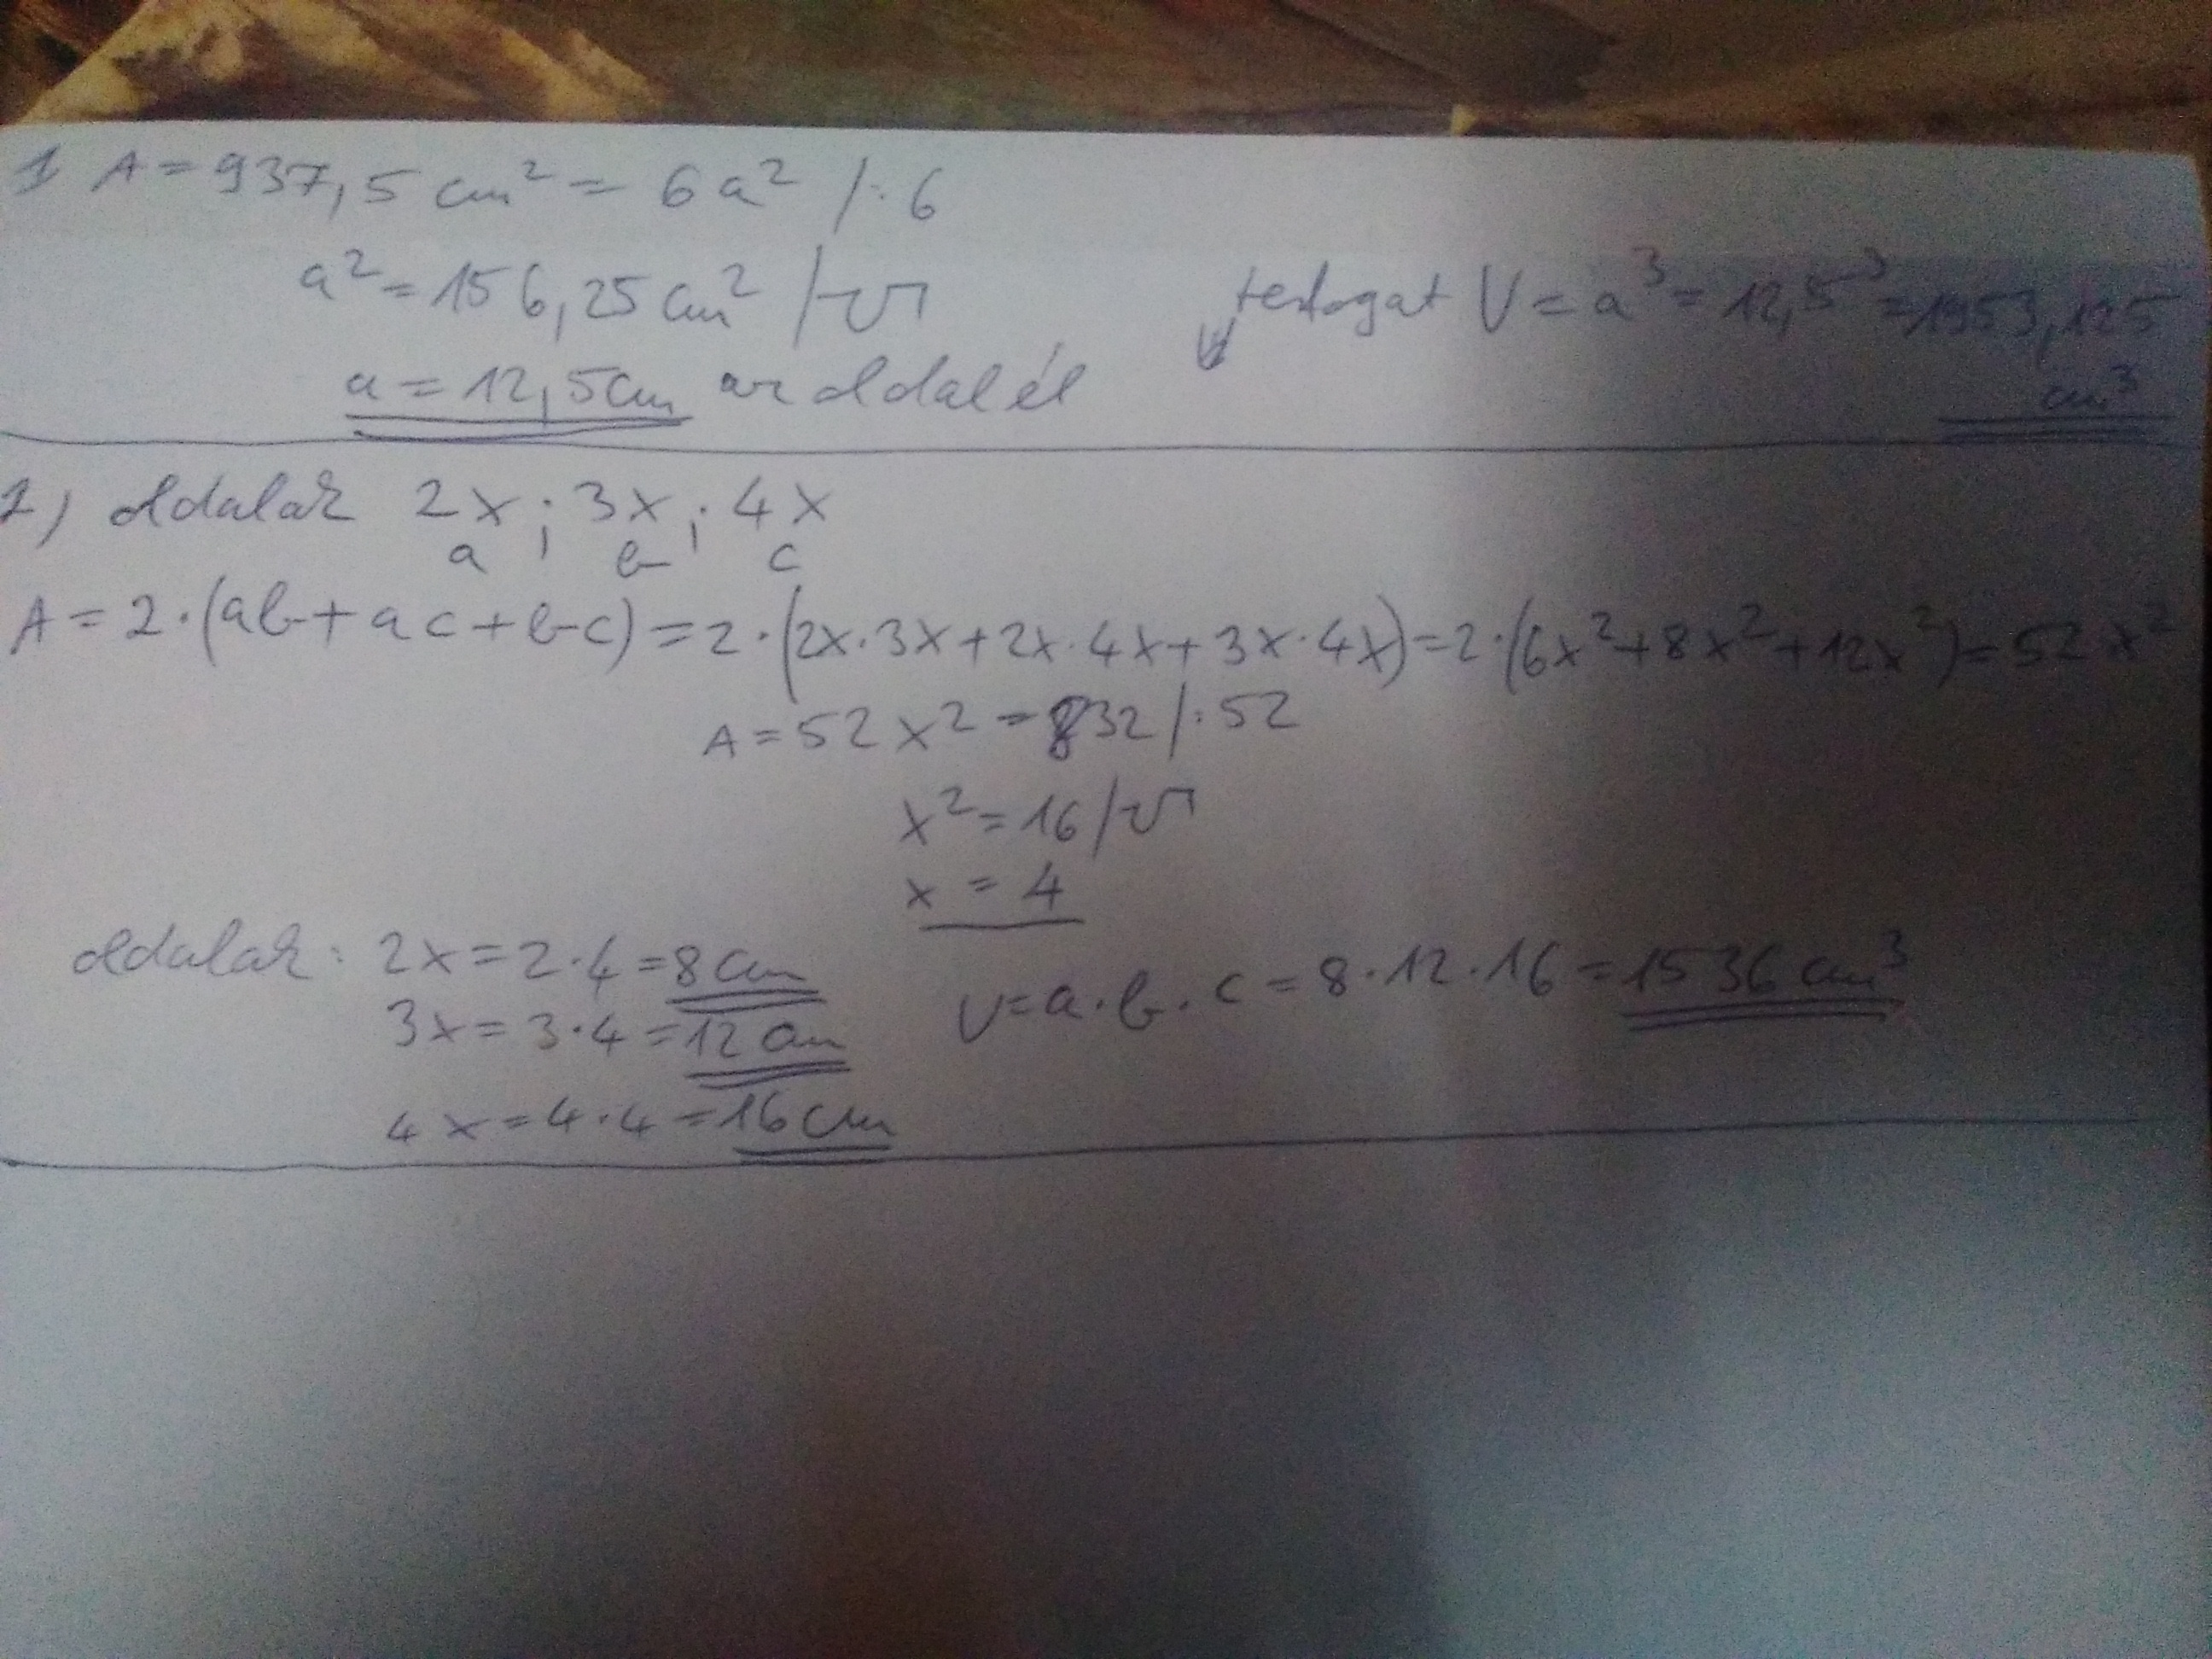 1 A = 937,5 cm² = 6a² /:6
a² = 156,25 cm² /√
a = 12,5cm az oldalél
térfogat V = a³ = 12,5³ = 1953,125
cm³
2, oldalak 2x ; 3x ; 4x
a ; b ; c
A = 2·(ab+ac+bc) = 2·(2x·3x+2x·4x+3x·4x) = 2·(6x²+8x²+12x²) = 52x²
A = 52x² = 832 /:52
x² = 16 /√
x = 4
oldalak: 2x = 2·4 = 8cm
3x = 3·4 = 12cm
4x = 4·4 = 16cm
V = a·b·c = 8·12·16 = 1536 cm³